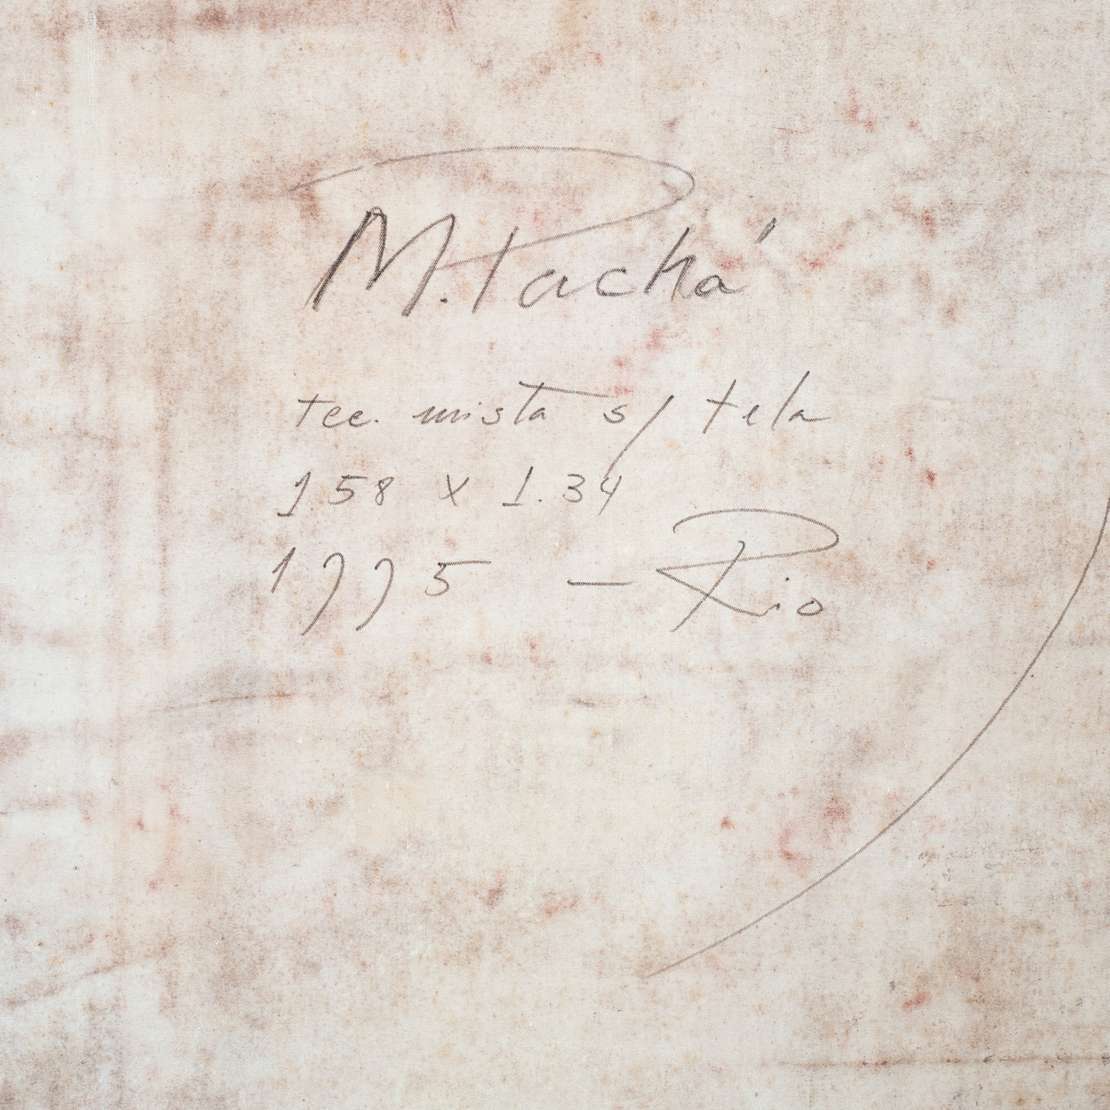 M. Pachá
tec. mista s/ tela
158 x 1.34
1995 - Rio